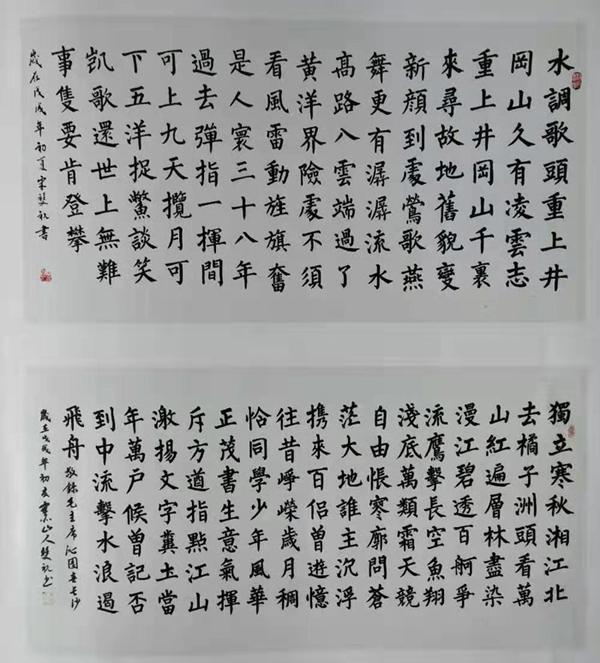 水調歌頭重上井
岡山久有凌雲志
重上井岡山千裏
來尋故地舊貌變
新顏到處鶯歌燕
舞更有潺潺流水
高路八雲端過了
黃洋界險處不須
看風雷動旌旗奮
是人寰三十八年
過去彈指一揮間
可上九天攬月可
下五洋捉鱉談笑
凱歌還世上無難
事隻要肯登攀
歲在戊戌年初夏宋書
獨立寒秋湘江北
去橘子洲頭看萬
山紅遍層林盡染
漫江碧透百舸爭
流鷹擊長空魚翔
淺底萬類霜天競
自由悵寒廓問蒼
茫大地誰主沉浮
携來百侶曾遊憶
往昔崢嶸歲月稠
恰同學少年風華
正茂書生意氣揮
斥方遒指點江山
激揚文字糞土當
年萬戶候曾記否
到中流擊水浪遏
飛舟敬錄毛主席沁園春長沙
歲在戊戌年初夏山人书